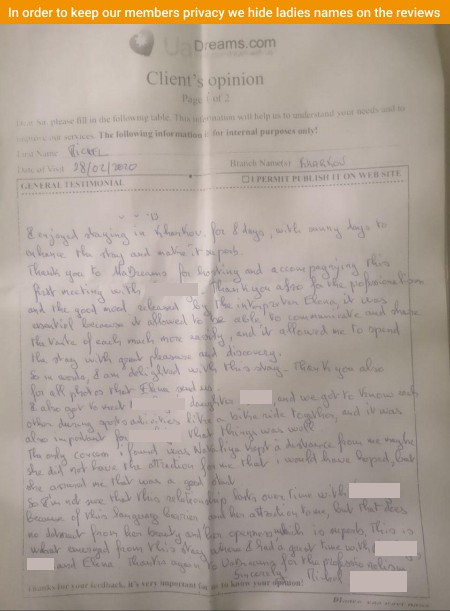 In order to keep our members privacy we hide ladies names on the reviews
UaDreams.com
Client's opinion
Page 1 of 2
Dear Sir, please fill in the following table. This information will help us to understand your needs and to
our services. The following information is for internal purposes only!
First Name Mickel
Date of Visit 28/02/2020 Branch Name(s) Kharkov
GENERAL TESTIMONIAL I PERMIT PUBLISH IT ON WEB SITE
I enjoyed staying in Kharkov for 8 days, with sunny days to
enhance the stay and make it superb
Thank you to UaDreams for hosting and accompagnying this
first meeting with Thank you also for the professionalism
and the good mood released by the interpreter Elena, it was
essential because it allowed to be able to communicate and share
the taste of each much more easily, and it allowed me to spend
the stay with great pleasure and discovery.
So in words, I am delighted with this stay. Thank you also
for all photos that Elena send us.
I also got to meet daughter and we got to know each
other during activities like a bike ride together, and it was
also important for that things was well
The only concern I found was kept a distance from me maybe
she did not have the attraction for me that I would have hoped, but
she assured me that was a good
So I'm not sure that this relationship lasts over time with
because of this language barrier and her attraction to me, but that does
no detract from her beauty and her openness which is superb. This is
what emerged from this stay where I had a great time with
and Elena Thanks again to UaDreams for the professionalism
Sincerely
Thanks for your feedback, it's very important for us to know your opinion!